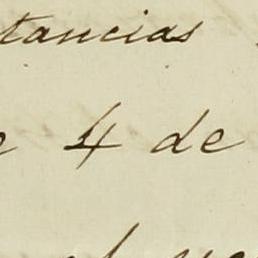 tancias
e 4 de